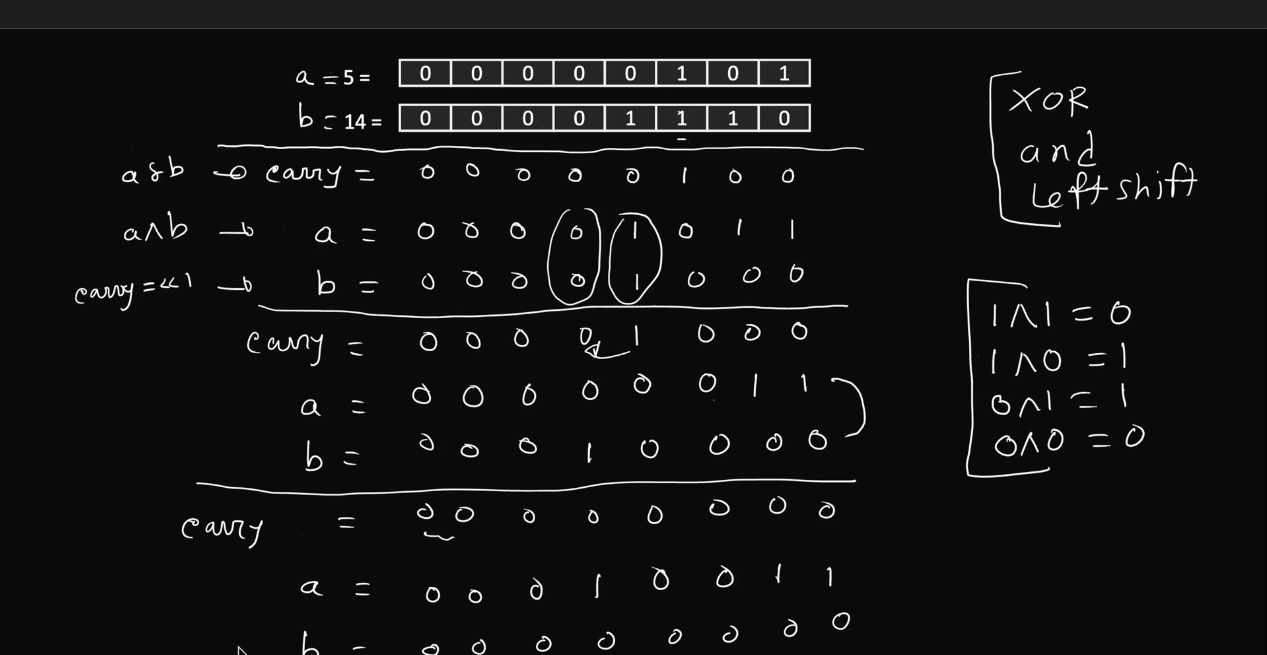 a = 5 = 0 0 0 0 0 1 0 1
b = 14 = 0 0 0 0 1 1 1 0
a & b → carry = 0 0 0 0 0 1 0 0
a ^ b → a = 0 0 0 0 1 0 1 1
carry = << 1 → b = 0 0 0 0 1 0 0 0
carry = 0 0 0 0 1 0 0 0
a = 0 0 0 0 0 0 1 1
b = 0 0 0 1 0 0 0 0
carry = 0 0 0 0 0 0 0 0
a = 0 0 0 1 0 0 1 1
b = 0 0 0 0 0 0 0 0
XOR
and
Left shift
1 ^ 1 = 0
1 ^ 0 = 1
0 ^ 1 = 1
0 ^ 0 = 0